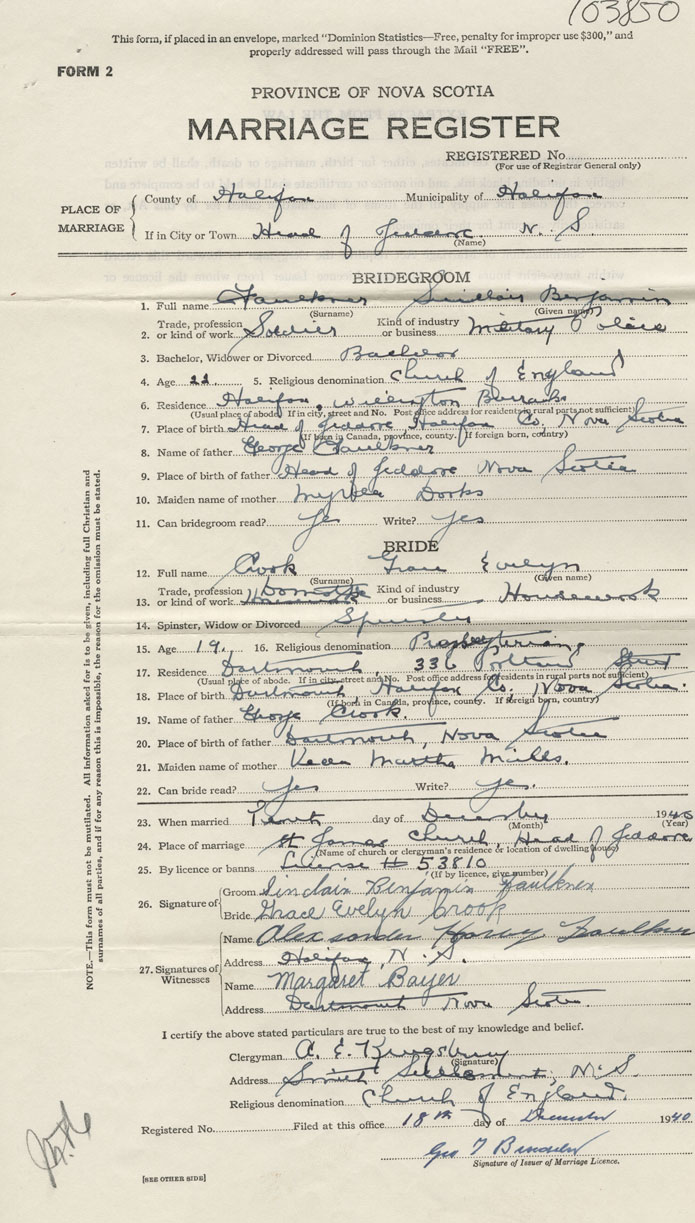 103850
This form, if placed in an envelope, marked "Dominion Statistics—Free, penalty for improper use $300," and
properly addressed will pass through the Mail "FREE".
FORM 2
PROVINCE OF NOVA SCOTIA
MARRIAGE REGISTER
REGISTERED No.
(For use of Registrar General only)
PLACE OF MARRIAGE
County of Halifax Municipality of Halifax
If in City or Town Head of Jeddore N. S.
(Name)
BRIDEGROOM
1. Full name Faulkner Sinclair Benjamin
(Surname) (Given name)
2. Trade, profession or kind of work Soldier Kind of industry or business Military Police
3. Bachelor, Widower or Divorced Bachelor
4. Age 22 5. Religious denomination Church of England
6. Residence Halifax, Wellington Barracks
(Usual place of abode. If in city, street and No. Post office address for residents in rural parts not sufficient)
7. Place of birth Head of Jeddore Halifax Co. Nova Scotia
(If born in Canada, province, county. If foreign born, country)
8. Name of father George Faulkner
9. Place of birth of father Head of Jeddore Nova Scotia
10. Maiden name of mother Dorks
11. Can bridegroom read? Yes Write? Yes
BRIDE
12. Full name Crook Grace Evelyn
(Surname) (Given name)
13. Trade, profession or kind of work Domestic Kind of industry or business Housework
14. Spinster, Widow or Divorced Spinster
15. Age 19. 16. Religious denomination Presbyterian
17. Residence Dartmouth, 336 Portland Street
(Usual place of abode. If in city, street and No. Post office address for residents in rural parts not sufficient)
18. Place of birth Dartmouth Halifax Co. Nova Scotia.
(If born in Canada, province, county. If foreign born, country)
19. Name of father George Crook.
20. Place of birth of father Dartmouth, Nova Scotia
21. Maiden name of mother Martha Mills.
22. Can bride read? Yes Write? Yes.
23. When married Tenth day of December 1940
(Month) (Year)
24. Place of marriage St James Church, Head of Jeddore
(Name of church or clergyman's residence or location of dwelling house)
25. By licence or banns License # 53810
(If by licence, give number)
26. Signature of
Groom Sinclair Benjamin Faulkner
Bride Grace Evelyn Crook
27. Signatures of Witnesses
Name Alexsander Harvey Faulkner
Address Halifax, N. S.
Name Margaret Bayer
Address Dartmouth Nova Scotia.
I certify the above stated particulars are true to the best of my knowledge and belief.
Clergyman A. E. Kingsbury
(Signature)
Address Smith Settlement, N.S.
Religious denomination Church of England.
Registered No. Filed at this office 18th day of December 1940
Geo T
Signature of Issuer of Marriage Licence.
[SEE OTHER SIDE]
NOTE.—This form must not be mutilated. All information asked for is to be given, including full Christian and
surnames of all parties, and if for any reason this is impossible, the reason for the omission must be stated.